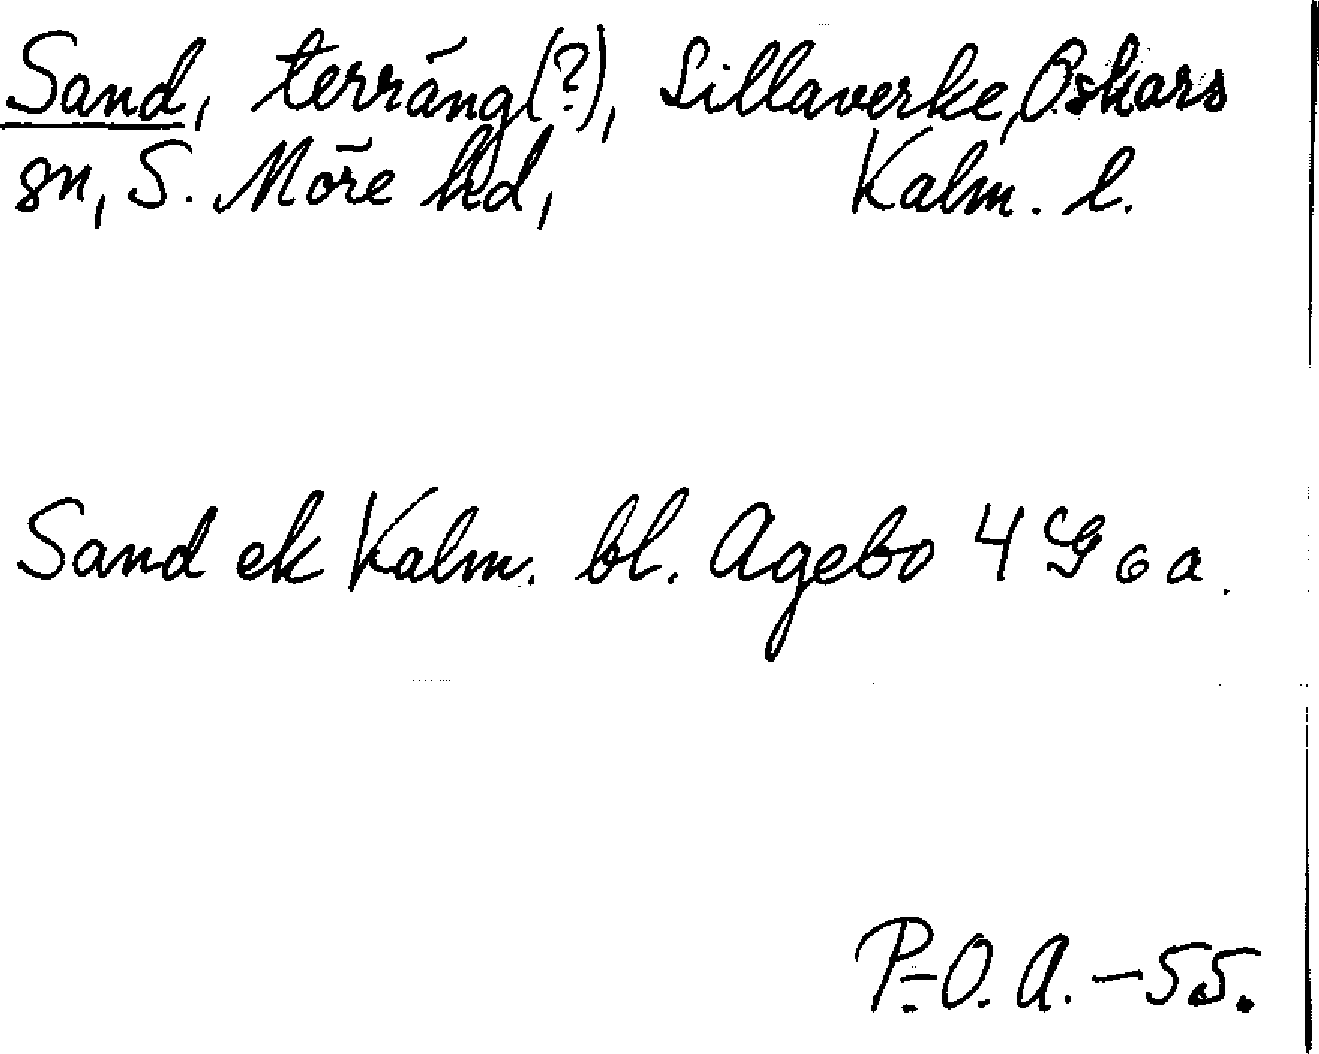 Sand, terräng(?), Sillaverke, Oskars
sn, S. Möre hd, Kalm. l.
Sand ek Kalm. bl. Agebo 4 G 6 a.
P.-O. A. - 55.